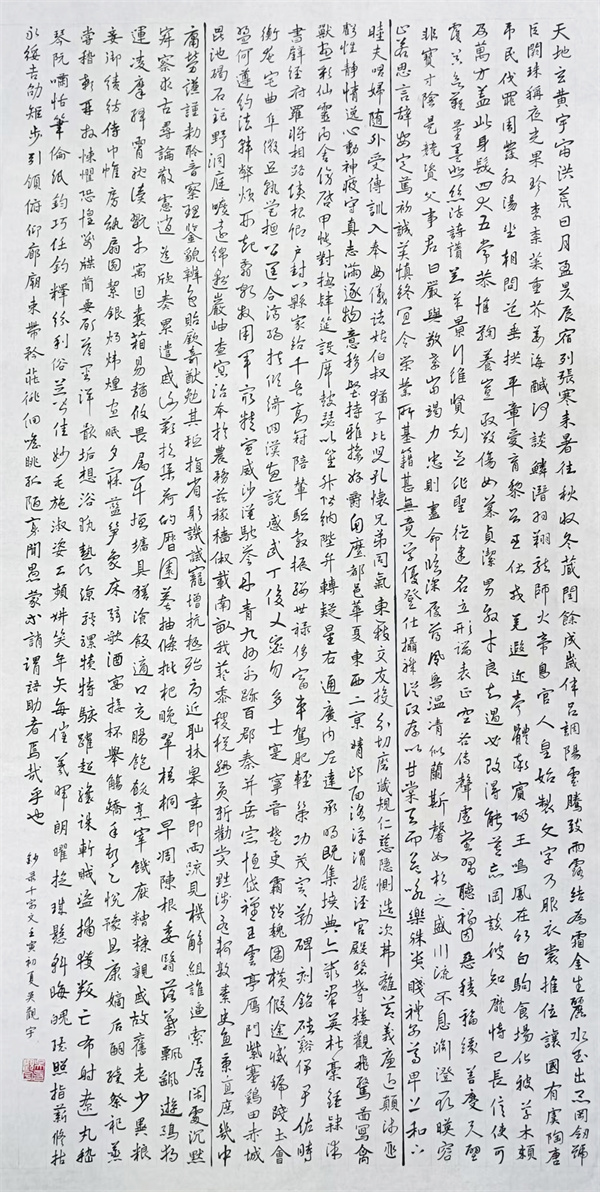 天地玄黃宇宙洪荒日月盈昃辰宿列張寒来暑往秋收冬藏閏餘成歲律呂調陽雲騰致雨露結為霜金生麗水玉出崑岡劍號
巨闕珠稱夜光果珍李柰菜重芥薑海鹹河淡鱗潛羽翔龍師火帝鳥官人皇始製文字乃服衣裳推位讓國有虞陶唐
弔民伐罪周發殷湯坐朝問道垂拱平章愛育黎首臣伏戎羌遐迩壹體率賓歸王鳴鳳在竹白駒食場化被草木賴
及萬方蓋此身髮四大五常恭惟鞠養豈敢毀傷女慕貞潔男效才良知過必改得能莫忘罔談彼短靡恃己長信使可
覆器欲難量墨悲絲染詩讚羔羊景行維賢剋念作聖德建名立形端表正空谷傳聲虛堂習聽禍因惡積福緣善慶尺璧
非寶寸陰是競資父事君曰嚴與敬孝當竭力忠則盡命臨深履薄夙興温凊似蘭斯馨如松之盛川流不息淵澄取暎容
止若思言辭安定篤初誠美慎終宜令榮業所基籍甚無竟學優登仕攝職從政存以甘棠去而益詠樂殊貴賤禮別尊卑上和下
睦夫唱婦隨外受傅訓入奉母儀諸姑伯叔猶子比兒孔懷兄弟同氣連枝交友投分切磨箴規仁慈隱惻造次弗離節義廉退顛沛匪
虧性靜情逸心動神疲守真志滿逐物意移堅持雅操好爵自縻都邑華夏東西二京背邙面洛浮渭據涇宮殿盤鬱樓觀飛驚圖寫禽
獸畫彩仙靈丙舍傍啓甲帳對楹肆筵設席鼓瑟吹笙升階納陛弁轉疑星右通廣內左達承明既集墳典亦聚群英杜稾鍾隸漆
書壁經府羅將相路俠槐卿戶封八縣家給千兵高冠陪輦驅轂振纓世祿侈富車駕肥輕策功茂實勒碑刻銘磻溪伊尹佐時
衡奄宅曲阜微旦孰營桓公匡合濟弱扶傾綺迴漢惠說感武丁俊乂密勿多士寔寧晉楚更霸趙魏困橫假途滅虢踐土會
盟何遵約法韓弊煩刑起翦頗牧用軍最精宣威沙漠馳譽丹青九州禹跡百郡秦并岳宗恒岱禪主雲亭雁門紫塞雞田赤城
昆池碣石鉅野洞庭曠遠綿邈巖岫杳冥治本於農務茲稼穡俶載南畝我藝黍稷稅熟貢新勸賞黜陟孟軻敦素史魚秉直庶幾中
庸勞謙謹勅聆音察理鑒貌辨色貽厥嘉猷勉其祗植省躬譏誡寵增抗極殆辱近耻林皋幸即兩疏見機解組誰逼索居閒處沉默
寂寥求古尋論散慮逍遥欣奏累遣慼謝歡招渠荷的歷園莽抽條枇杷晚翠梧桐早凋陳根委翳落葉飄颻遊鵾獨
運凌摩絳霄耽讀翫市寓目囊箱易輶攸畏屬耳垣墻具膳飡飯適口充腸飽飫烹宰饑厭糟糠親戚故舊老少異糧
妾御績紡侍巾帷房紈扇圓絜銀燭煒煌晝眠夕寐藍笋象床弦歌酒宴接杯舉觴矯手頓足悅豫且康嫡后嗣續祭祀蒸
嘗稽顙再拜悚懼恐惶箋牒簡要顧答審詳骸垢想浴執熱願涼驢騾犢特駭躍超驤誅斬賊盜捕獲叛亡布射遼丸嵇
琴阮嘯恬筆倫紙鈞巧任釣釋紛利俗並皆佳妙毛施淑姿工顰妍笑年矢每催羲暉朗曜璇璣懸斡晦魄環照指薪修祜
永綏吉劭矩步引領俯仰廊廟束帶矜莊徘徊瞻眺孤陋寡聞愚蒙等誚謂語助者焉哉乎也
鈔录千字文壬寅初夏吴觀宇